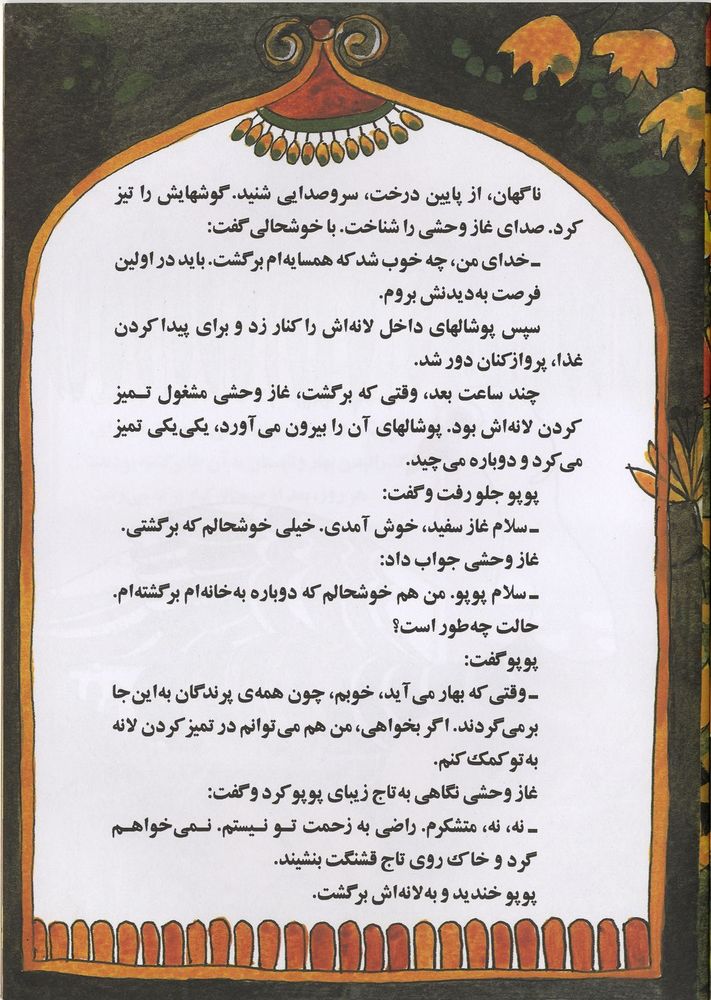 ناگهان، از پایین درخت، سروصدایی شنید. گوشهایش را تیز
کرد. صدای غاز وحشی را شناخت. با خوشحالی گفت:
ـ خدای من، چه خوب شد که همسایه‌ام برگشت. باید در اولین
فرصت به‌دیدنش بروم.
سپس پوشالهای داخل لانه‌اش را کنار زد و برای پیدا کردن
غذا، پروازکنان دور شد.
چند ساعت بعد، وقتی که برگشت، غاز وحشی مشغول تـمیز
کردن لانه‌اش بود. پوشالهای آن را بیرون می‌آورد، یکی‌یکی تمیز
می‌کرد و دوباره می‌چید.
پوپو جلو رفت و گفت:
ـ سلام غاز سفید، خوش آمدی. خیلی خوشحالم که برگشتی.
غاز وحشی جواب داد:
ـ سلام پوپو. من هم خوشحالم که دوباره به‌خانه‌ام برگشته‌ام.
حالت چه‌طور است؟
پوپو گفت:
ـ وقتی که بهار می‌آید، خوبم، چون همه‌ی پرندگان به‌این‌جا
برمی‌گردند. اگر بخواهی، من هم می‌توانم در تمیز کردن لانه
به‌تو کمک کنم.
غاز وحشی نگاهی به‌تاج زیبای پوپو کرد و گفت:
ـ نه، نه، متشکرم. راضی به زحمت تـو نـیستم. نـمی‌خواهـم
گرد و خاک روی تاج قشنگت بنشیند.
پوپو خندید و به‌لانه‌اش برگشت.